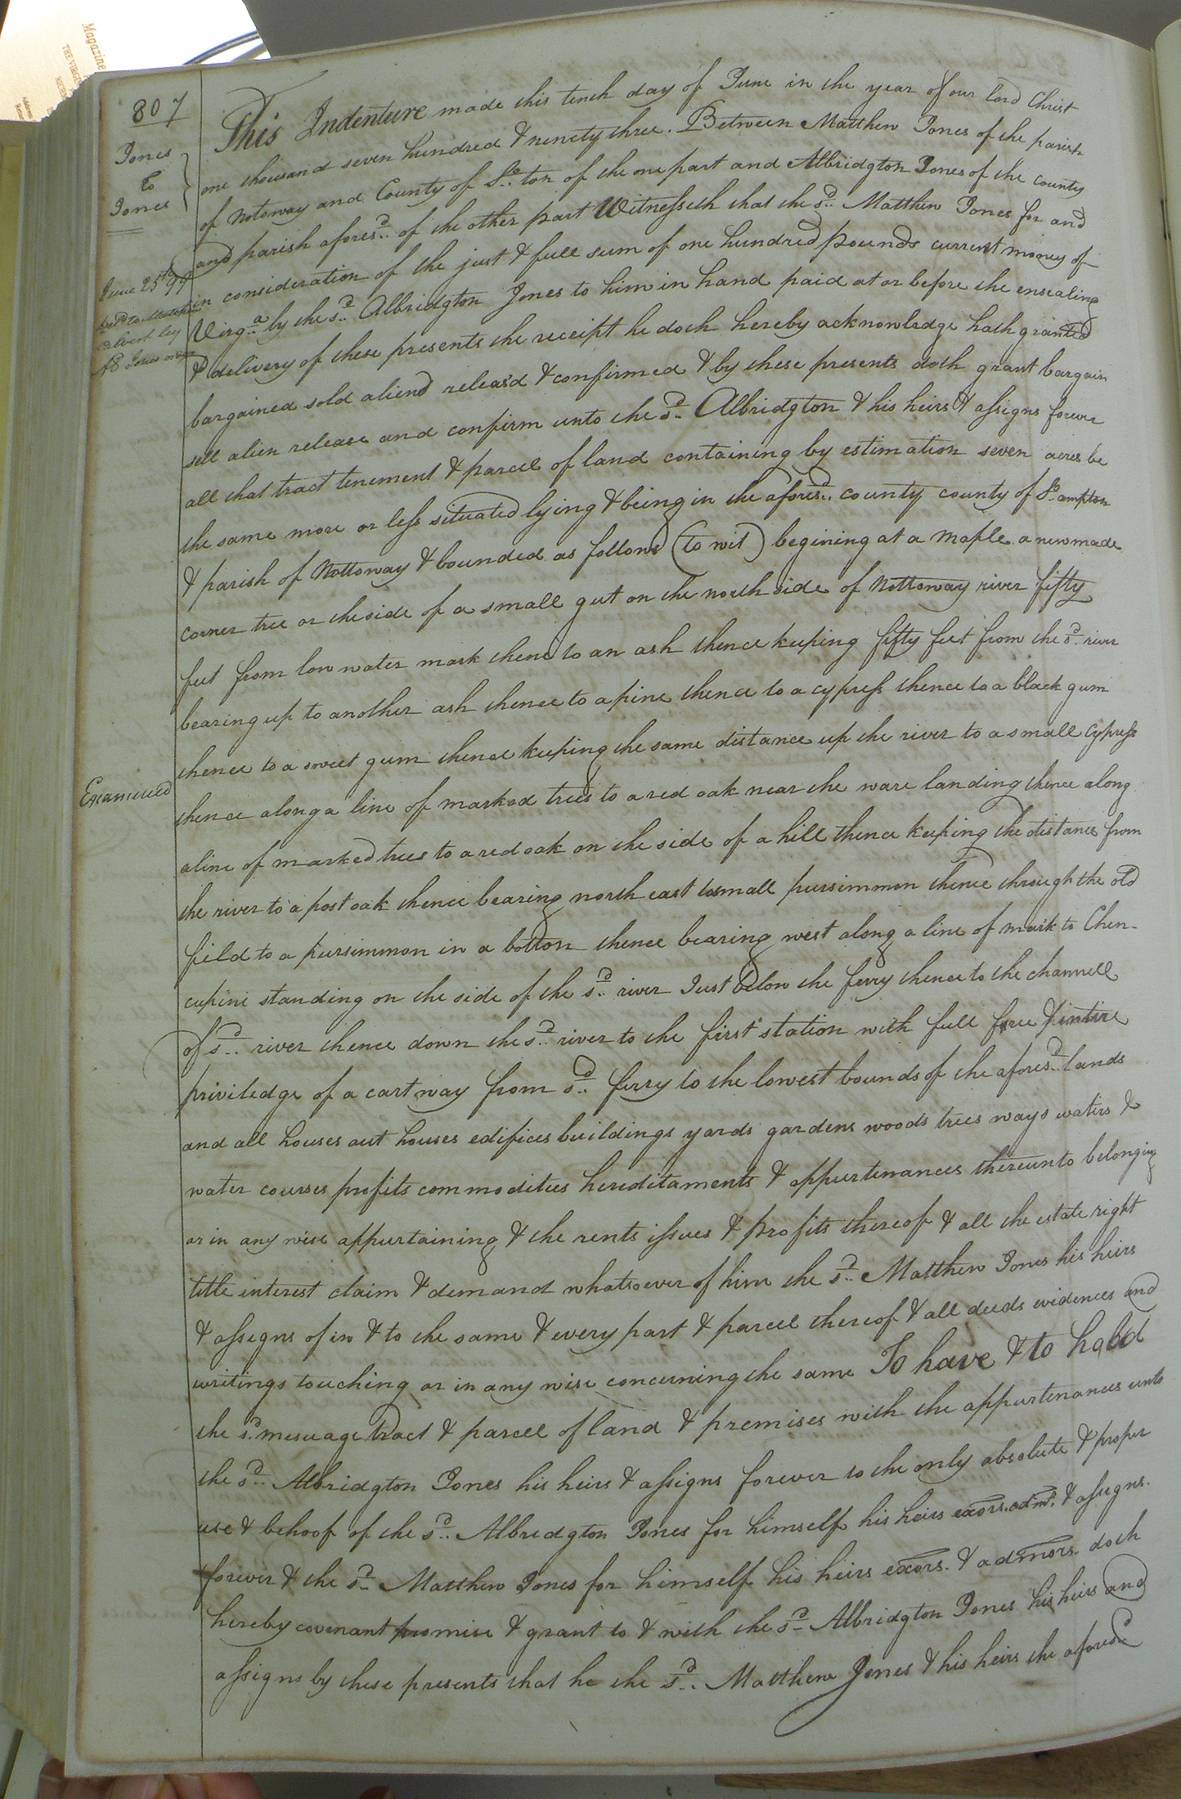 807
Jones
to
Jones
June 25th 97
This Indenture made this tenth day of June in the year of our lord Christ
one thousand seven hundred & ninety three. Between Matthew Jones of the parish
of Notoway and County of So..ton of the one part and Albridgton Jones of the county
and parish aforesd.. of the other part Witnesseth that the sd.. Matthew Jones for and
in consideration of the just & full sum of one hundred pounds current money of
Virga.. by the sd.. Albridgton Jones to him in hand paid at or before the ensealing
& delivery of these presents the receipt he doth hereby acknowledge hath granted
bargained sold aliend releas'd & confirmed & by these presents doth grant bargain
sell alien release and confirm unto the sd.. Albridgton & his heirs & assigns forever
all that tract tenement & parcel of land containing by estimation seven acres be
the same more or less situated lying & being in the aforesd.. county county of So.ampton
& parish of Nottoway & bounded as follows (to wit) begining at a maple a new made
corner tree or the side of a small gut on the north side of Nottoway river fifty
feet from low water mark thence to an ash thence keeping fifty feet from the sd. river
bearing up to another ash thence to a pine thence to a cypress thence to a black gum
thence to a sweet gum thence keeping the same distance up the river to a small Cypress
Examined
thence along a line of marked trees to a red oak near the ware landing thence along
a line of marked trees to a red oak on the side of a hill thence keeping the distance from
the river to a post oak thence bearing north east to small pursimmon thence through the old
field to a pursimmon in a bottom thence bearing west along a line of mark to Chen-
cupine standing on the side of the sd.. river Just below the ferry thence to the channell
of sd.. river thence down the sd.. river to the first station with full free & intire
priviledge of a cart way from sd.. ferry to the lowest bounds of the aforesd.. lands
and all houses out houses edifices buildings yards gardens woods trees ways waters &
water courses profits commodities hereditaments & appurtenances thereunto belonging
or in any wise appurtaining & the rents issues & profits thereof & all the estate right
title interest claim & demand whatsoever of him the sd.. Matthew Jones his heirs
& assigns of in & to the same & every part & parcel thereof & all deeds evidences and
writings touching or in any wise concerning the same To have & to hold
the sd. mesuage tract & parcel of land & premises with the appurtenances unto
the sd.. Albridgton Jones his heirs & assigns forever to the only absolute & proper
use & behoof of the sd.. Albridgton Jones for himself his heirs exors. adms. & assigns.
forever & the sd.. Matthew Jones for himself his heirs exors. & admors. doth
hereby covenant promise & grant to & with the sd.. Albridgton Jones his heirs and
assigns by these presents that he the sd.. Matthew Jones & his heirs the aforesd..